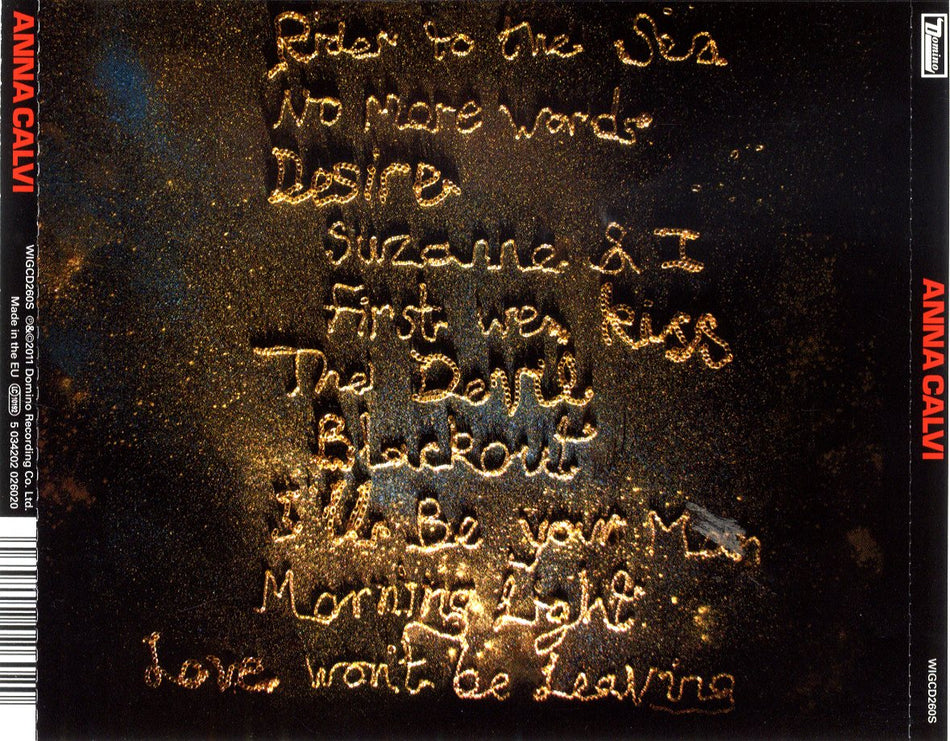 Rider to the Sea
No More Words
Desire
Suzanne & I
First we kiss
The Devil
Blackout
I'll Be your Man
Morning Light
Love won't be Leaving
ANNA CALVI
WIGCD260S ℗&©2011 Domino Recording Co. Ltd.
Made in the EU LC 10192 5 034202 026020
Domino
ANNA CALVI
WIGCD260S